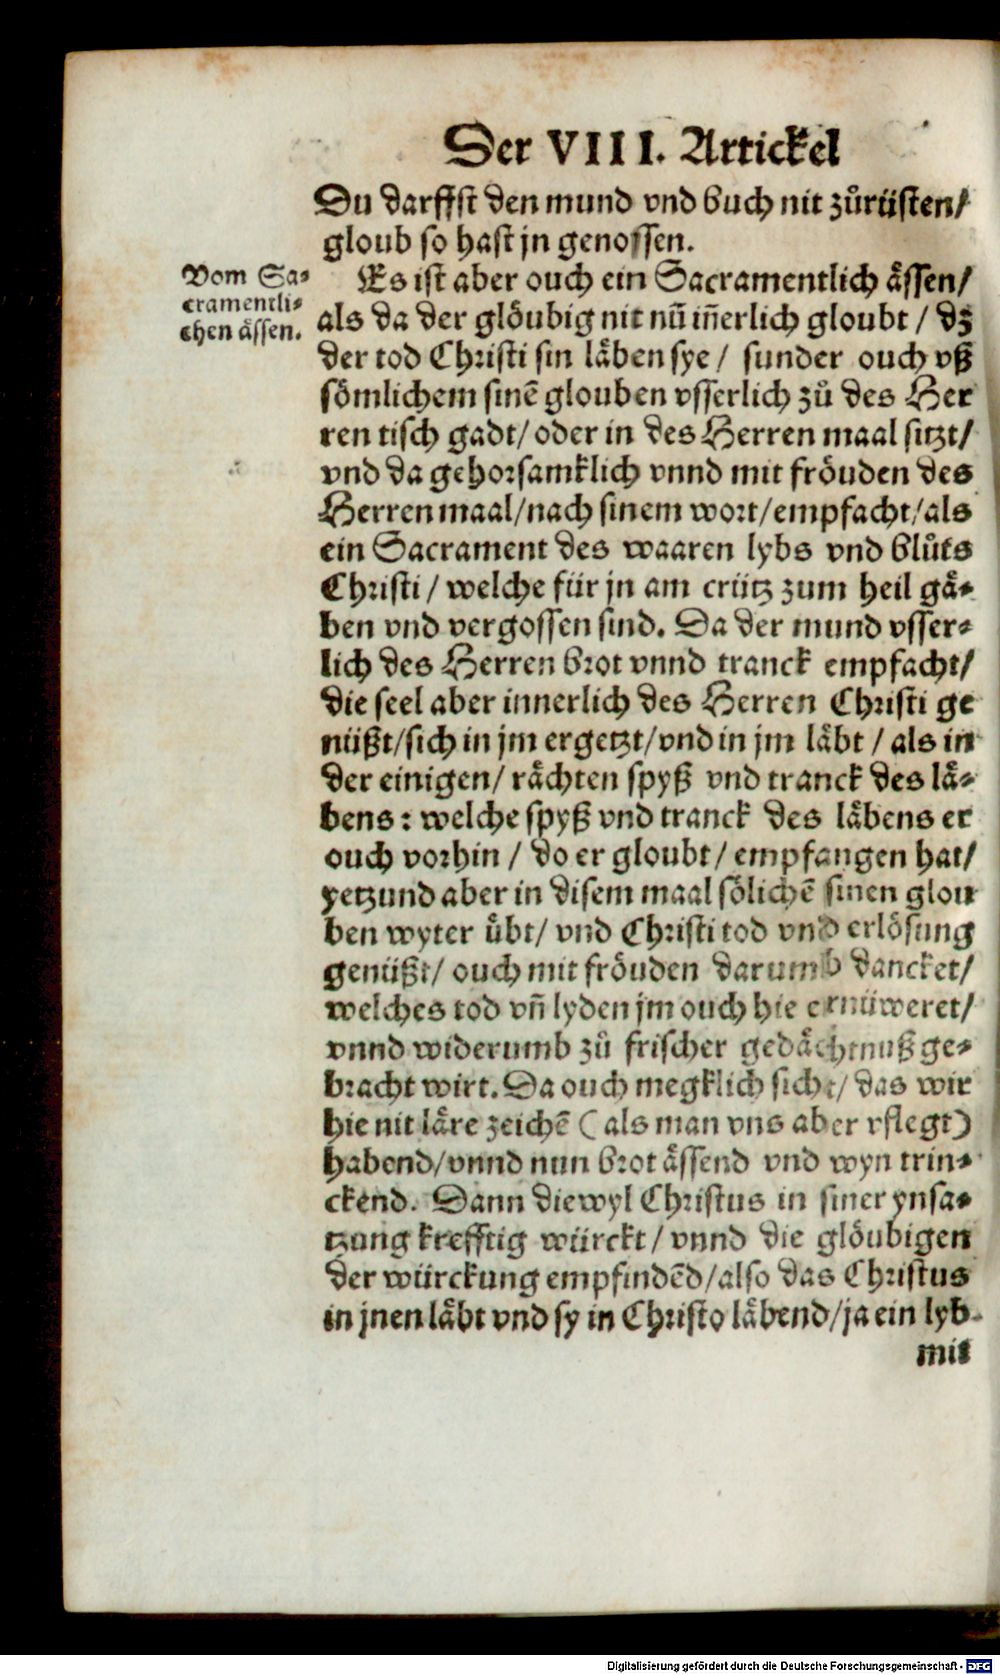 Der VIII. Artickel
Du darffst den mund vnd buch nit zůrüsten/
gloub so hast jn genossen.
Vom Sa⸗
cramentli⸗
chen ässen.
Es ist aber ouch ein Sacramentlich ässen/
als da der glöubig nit nū iñerlich gloubt / dz
der tod Christi sin läben sye / sunder ouch vß
sömlichem sinē glouben vsserlich zů des Her
ren tisch gadt/ oder in des Herren maal sitzt/
vnd da gehorsamklich vnnd mit fröuden des
Herren maal/nach sinem wort/empfacht/als
ein Sacrament des waaren lybs vnd blůts
Christi / welche für jn am crütz zum heil gä⸗
ben vnd vergossen sind. Da der mund vsser⸗
lich des Herren brot vnnd tranck empfacht/
die seel aber innerlich des Herren Christi ge
nüßt/sich in jm ergetzt/vnd in jm läbt / als in
der einigen/ rächten spyß vnd tranck des lä⸗
bens: welche spyß vnd tranck des läbens er
ouch vorhin / do er gloubt/ empfangen hat/
yetzund aber in disem maal sölichē sinen glou
ben wyter übt/ vnd Christi tod vnd erlösung
genüßt/ ouch mit fröuden darumb dancket/
welches tod vñ lyden jm ouch hie ernüweret/
vnnd widerumb zů frischer gedächtnuß ge⸗
bracht wirt. Da ouch megklich sicht/ das wir
hie nit läre zeichē (als man vns aber vflegt)
habend/vnnd nun brot ässend vnd wyn trin⸗
ckend. Dann diewyl Christus in siner ynsa⸗
tzung krefftig würckt/ vnnd die glöubigen
der würckung empfindēd/also das Christus
in jnen läbt vnd sy in Christo läbend/ja ein lyb
mit
Digitalisierung gefördert durch die Deutsche Forschungsgemeinschaft - DFG